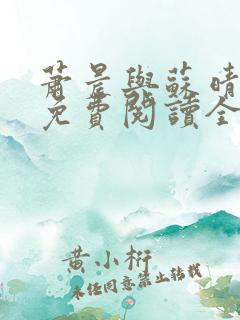 蕭晨與蘇晴
免費閱讀全
黃小桁
未经同意禁止转载